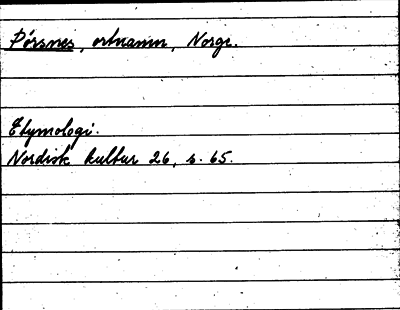 Þórsnes, ortnamn, Norge.
Etymologi.
Nordisk kultur 26, s. 65.